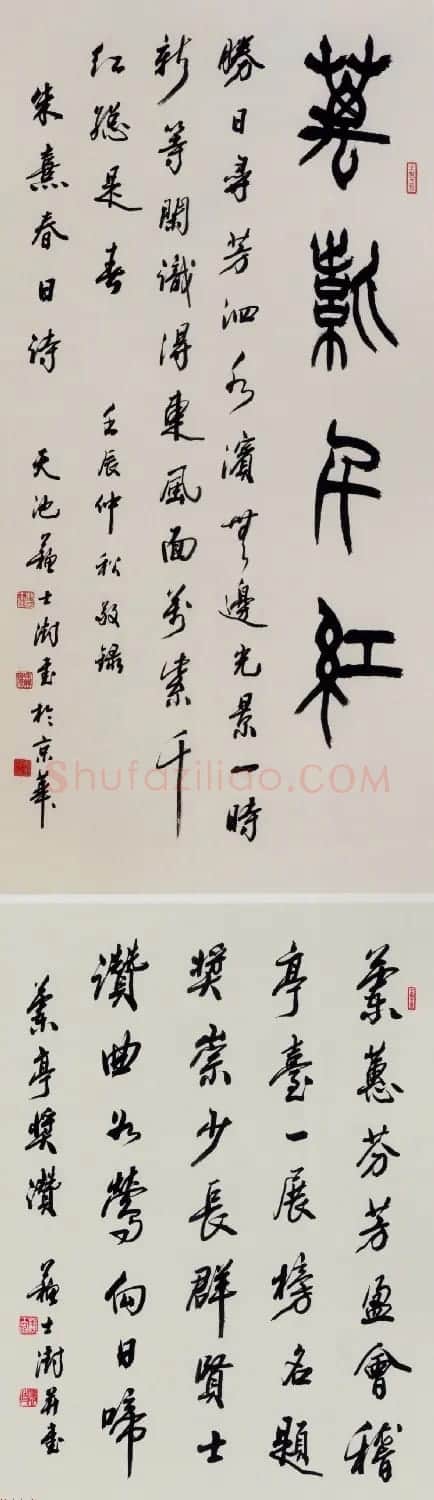 萬紫千紅
勝日尋芳泗水濱無邊光景一時
新等閑識得東風面萬紫千
紅總是春 壬辰仲秋敬錄
朱熹春日詩 天池蘇士澍書於京華
Shufaziliao.COM
蘭蕙芬芳盈會稽
亭臺一展榜名題
獎崇少長群賢士
讚曲如鶯向日啼
蘭亭獎讚 蘇士澍并書